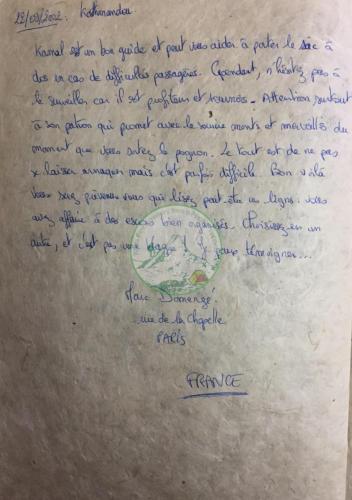 22/03/2002. Kathmandou
Kamal est un bon guide et peut vous aider à porter le sac à
dos en cas de difficultés passagères. Cependant, n'hésitez pas à
le surveiller car il est profiteur et sournois. Attention surtout
à son patron qui promet avec le sourire monts et merveilles du
moment que vous sortez le pognon. Le tout est de ne pas
se laisser arnaquer mais c'est parfois difficile. Bon voilà
vous êtes prévenus vous qui lisez peut-être ces lignes. Vous
avez affaire à des escrocs bien organisés. Choisissez-en un
autre, et c'est pas une blague ! Je peux témoigner...
Marc Domengé
rue de la Chapelle
PARIS
FRANCE